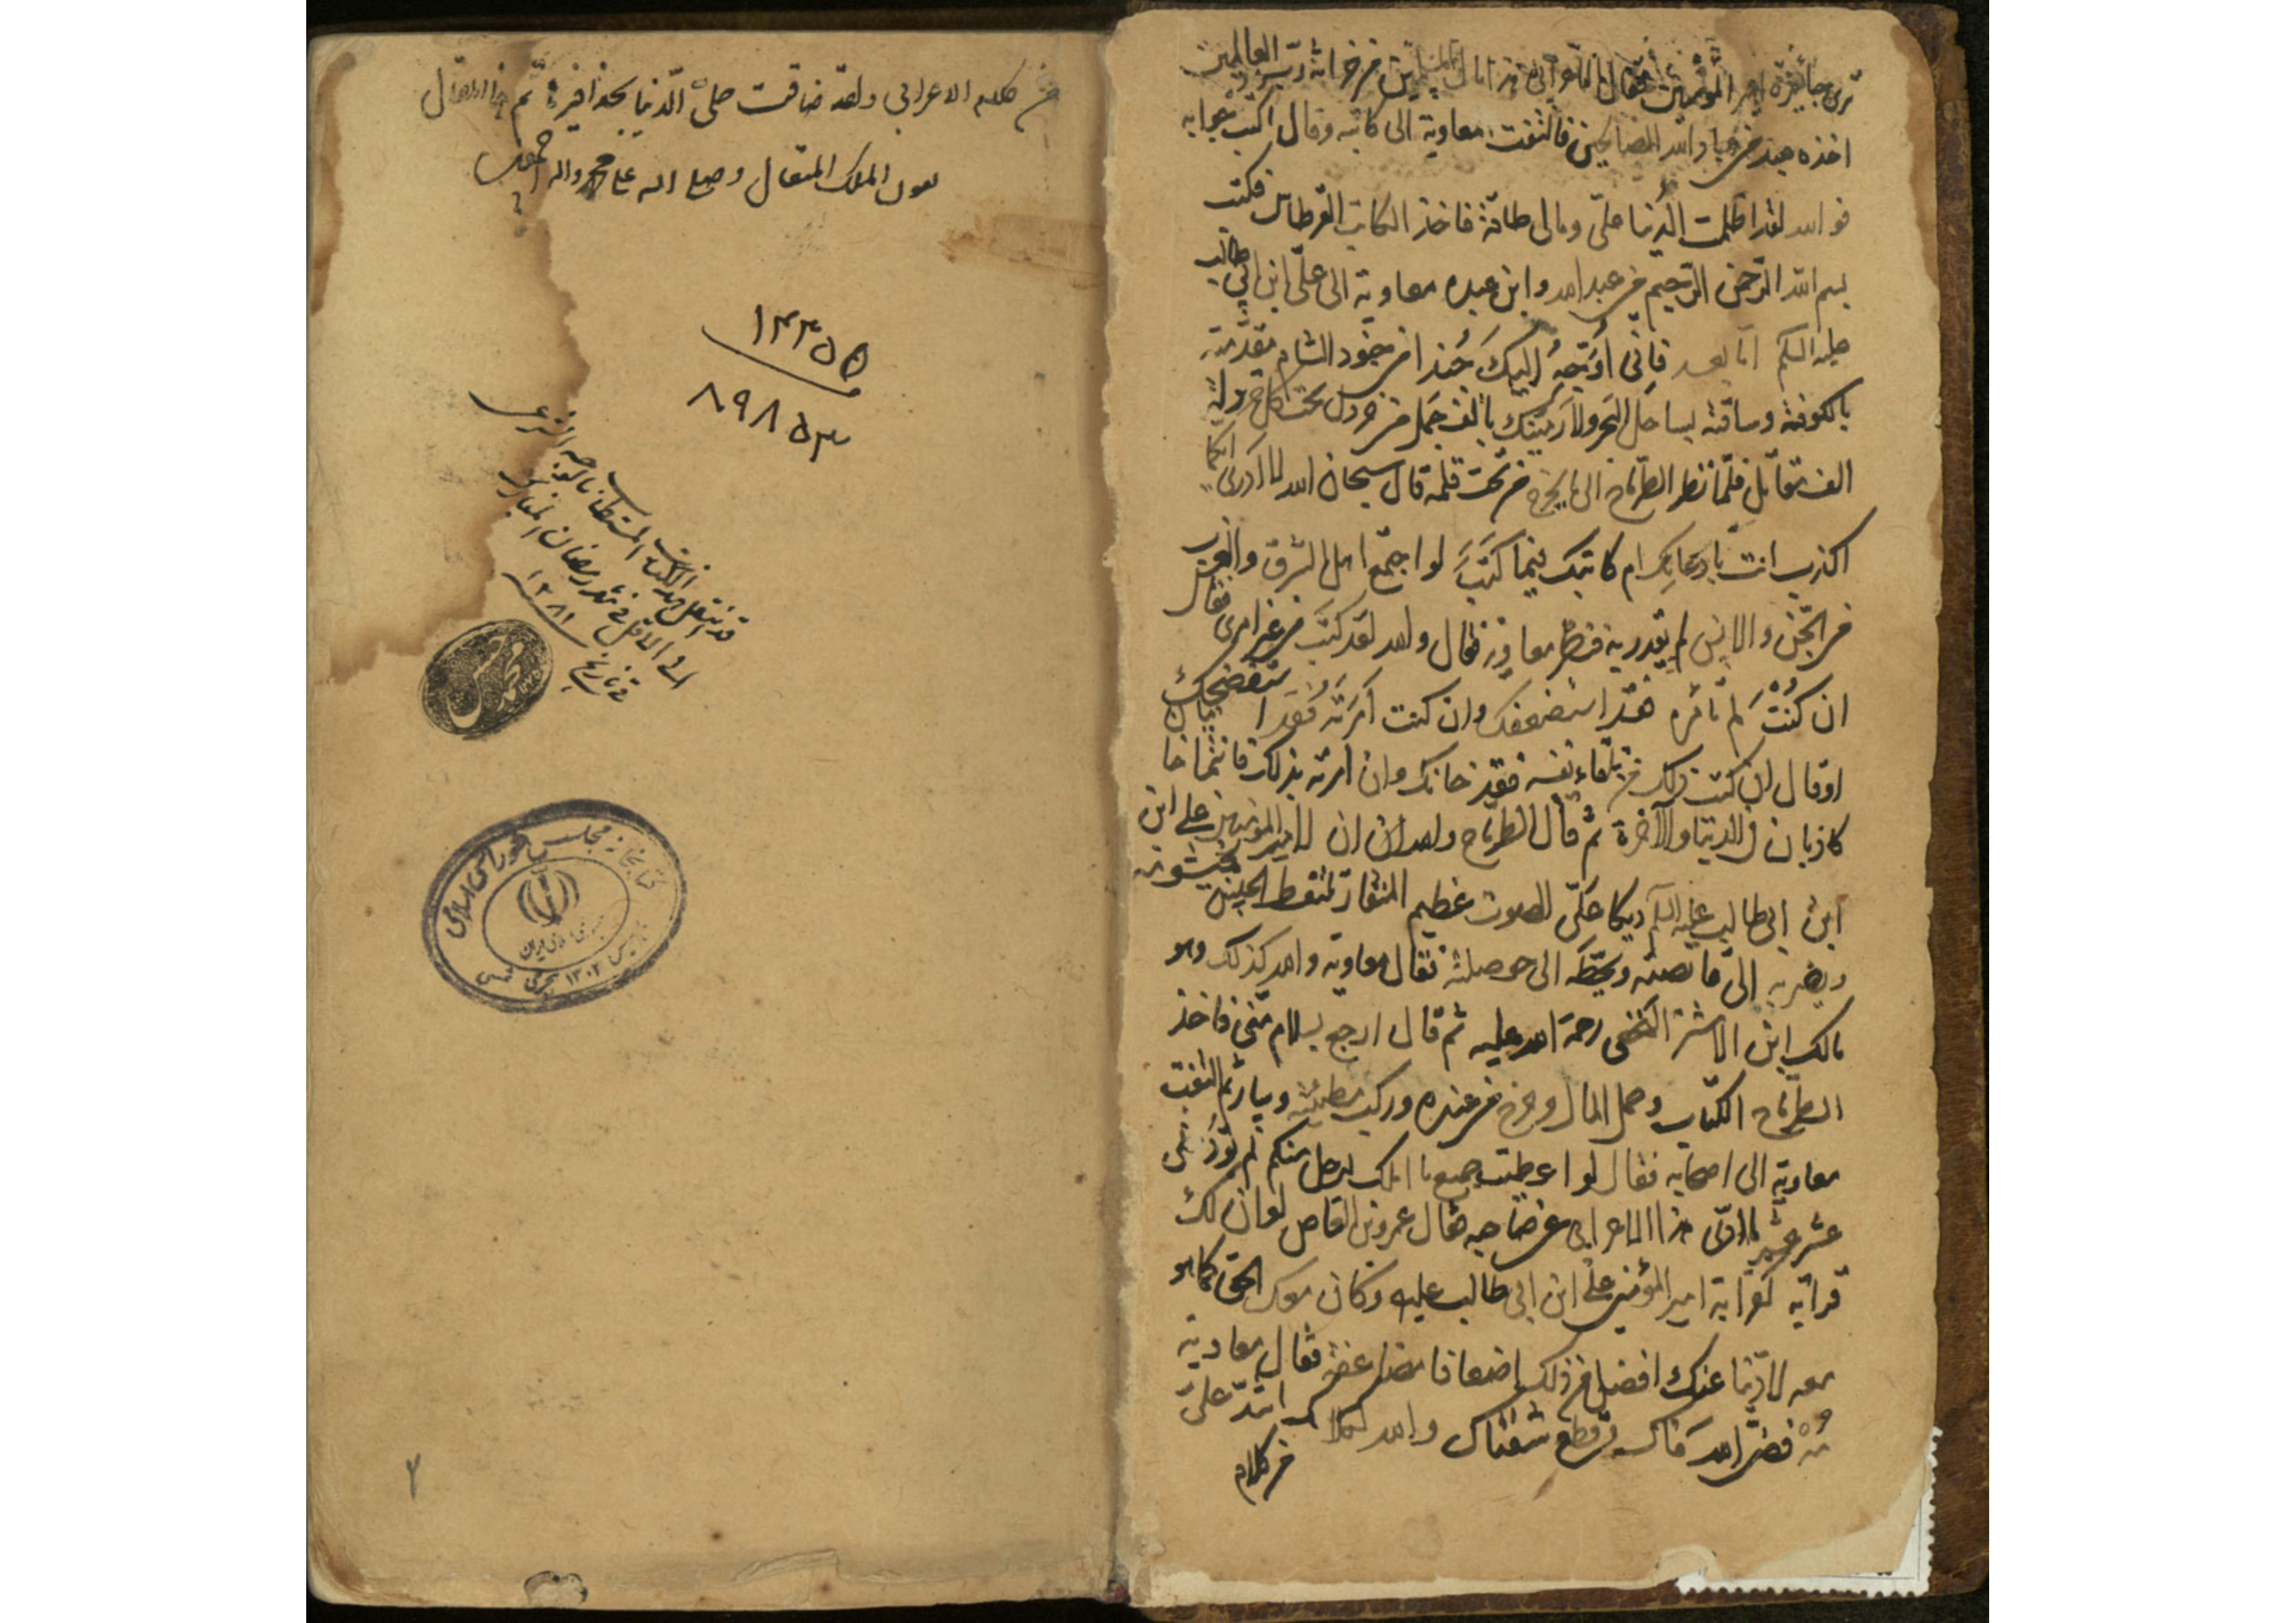 ترى جائزة امير المؤمنين فقال الاعرابى هذا مال المسلمين من خزانة رب العالمين
اخذه عبد من عباد الله الصالحين فالتفت معاوية الى كاتبه وقال اكتب جوابه
فو الله لقد اظلمت الدنيا علىّ ومالى طاقة فاخذ الكاتب القرطاس فكتب
بسم الله الرحمن الرحيم من عبد الله وابن عبده معاوية الى علىّ ابن ابى طالب
عليه السلم امّا بعد فانى اُوَجّهُ اليكَ جُندا من جنود الشام مقدمته
بالكوفة وساقته بساحل البحر ولارمينك بالف جمل من خردل تحت كل خردلة
الف مقاتل فلمّا نظر الطرماح الى ما يخرج من تحت قلمه قال سبحان الله لا ادرى ايكما
اكذب انت بادعائك ام كاتبك فيما كتبَ لو اجتمع اهل الشرق والغرب
من الجنّ والانس لم يقدر به فنظر معاوية فقال والله لقد كتب من غير امرى فقال
ان كُنتَ لم تامره فقد استضعفك وان كنت اَمَرتَهُ فَقَد استفضحك
او قال ان كتب ذلك من تلقاء نفسه فقد خانك وان امرته بذلك فانتما خا
كاذبان فى الدنيا والآخرة ثم قال الطرماح ان لامير المؤمنين على ابن
ابن ابى طالب عليه السلم ديكا علىّ الصوت عظيم المنقار يلتقط الجيش
الى قانصته ويحطه الى حوصلته فقال معاوية والله كذلك وهو
مالك ابن الاشتر النخعى رحمة الله عليه ثم قال ارجع بسلام منى فاخذ
الطرماح الكتاب وحمل المال وخرج من عنده وركب مطيته وسار ثم التفت
معاوية الى اصحابه فقال لو اعطيت جميع ما املك لرجل منكم لم يؤد عنى
عشر عشير ما ادّى هذا الاعرابى عن صاحبه فقال عمرو بن العاص لو ان لك
قرابة كقرابة امير المؤمنين على ابن ابى طالب عليه وكان معك الحق كما هو
معه لادّينا عنك افضل من ذلك اضعافا مضاعفة فقال معاوية
مه فضّ الله فاك وقطع شفتاك والله لكلامك اشدّ علىّ
من كلام
من كلام الاعرابى ولقد ضاقت علىّ الدّنيا بحذافيره تم هذا المقال
بعون الملك المتعال وصلى الله على محمد واله اجمعين
١٣٣٥٥
٨٩٨٥٣
قد انتقل هذا الكتاب المستطاب بالوجه الشرعى
الى الاقل فى شهر رمضان المبارك
فى تاريخ ١٢٨١
كتابخانه مجلس شوراى اسلامى
تاسيس ١٣٠٢ هجرى شمسى
٢